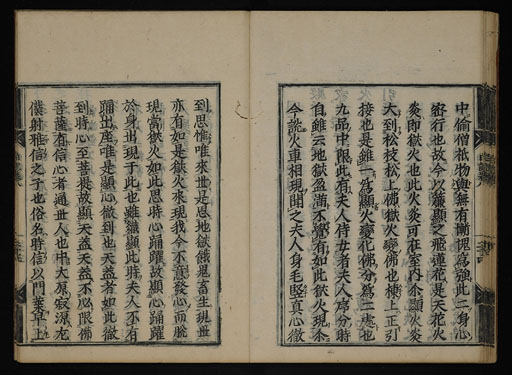 中偷僧祇物無有慚愧爲強此二身心
密行也故今以嚴顯之飛蓮花是天花火
炎即獄火也此火炎可在室內余顯火炎
大到松枝松上佛獄火變佛也棟上正引
接也是雖一爲顯火變化佛分爲二處也
九品中限此有夫人侍女者夫人席分時
自雖云地獄盈滿不覺有如此獄火現余
今訖火重相現聞之夫人身毛竪真心徹
到思惟唯來世是思地獄餓鬼畜生現世
亦有如是獄火來現我今不意發心而脫
現當獄火如此思時心踊躍故顯心踊躍
於身出現于此也雖獄顯此時夫人不有
踊出座唯是顯心徹到也天蓋者如此徹
到時心至菩提故顯天蓋天蓋不必限佛
菩薩有信心者通世人也中大原寂源左
僕射雅信之子也俗名時信以門葉草上